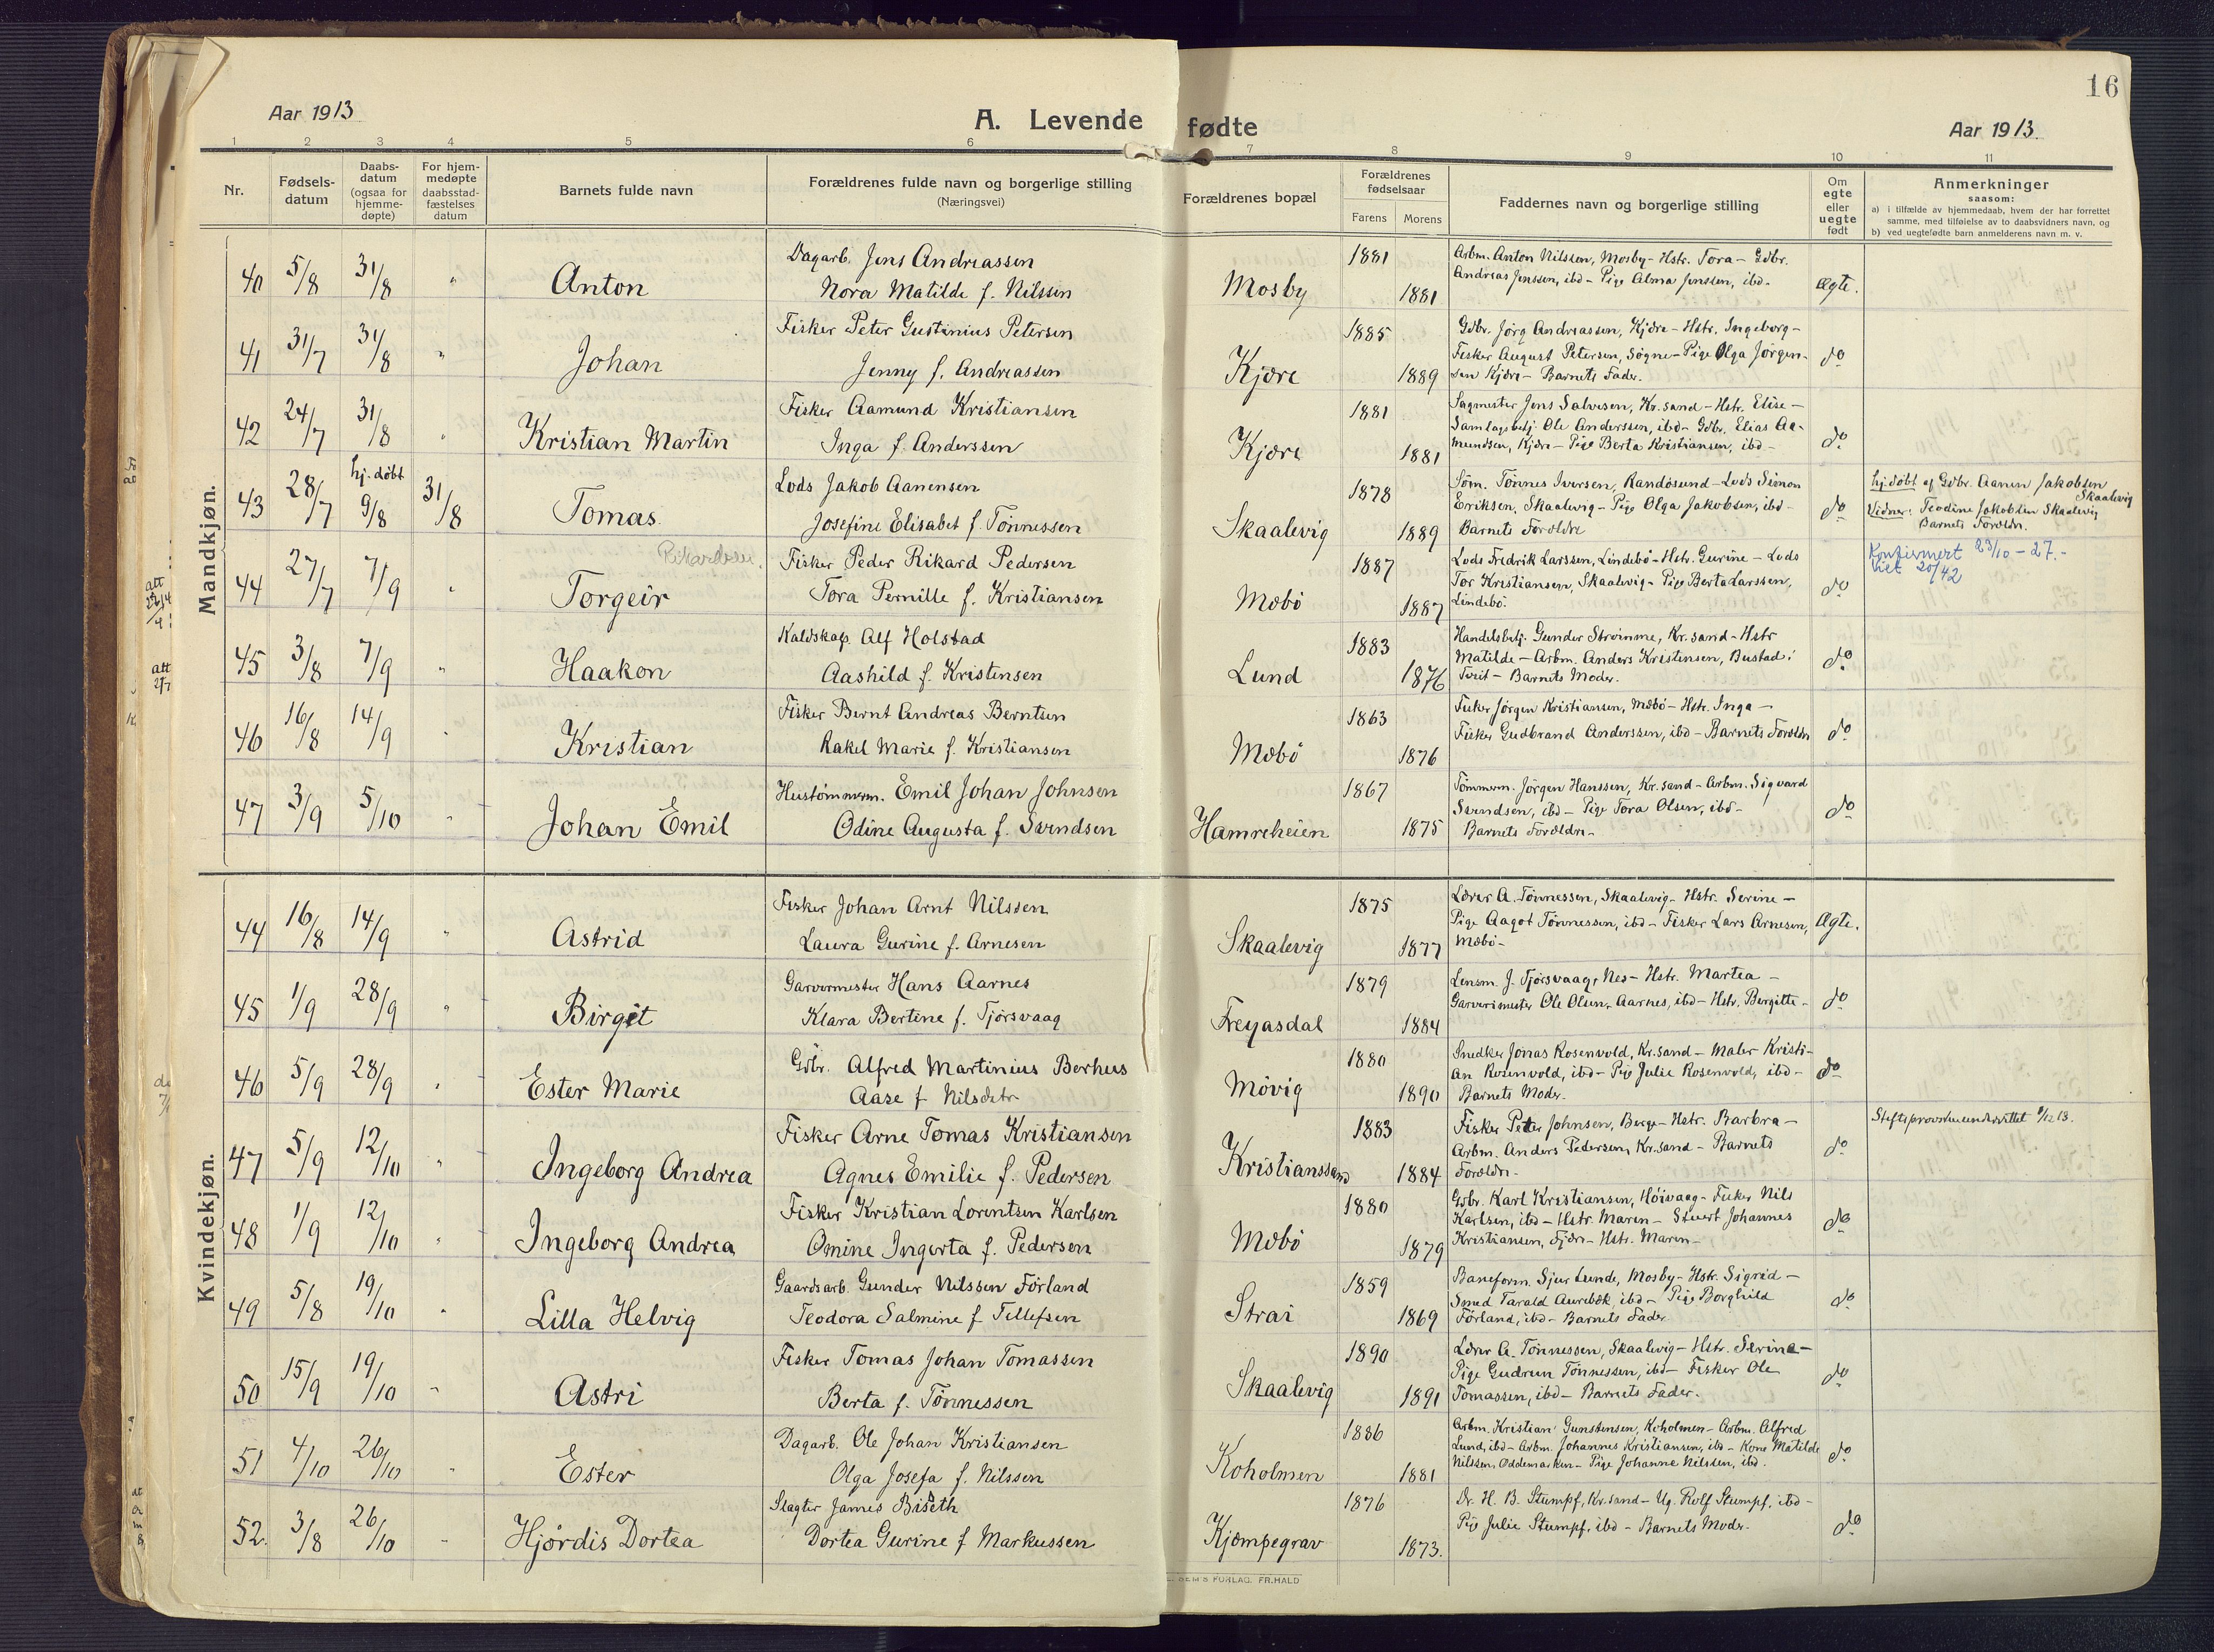 16
Aar 1913
A. Levende fødte
Aar 1913.
1 2 3 4 5 6 7 8 9 10 11
Nr.
Fødsels-
datum
Daabs-
datum
(ogsaa for
hjemme-
døpte)
For hjem-
medøpte
daabsstad-
fæstelses
datum
Barnets fulde navn
Forældrenes fulde navn og borgerlige stilling
(Næringsvei)
Forældrenes bopæl
Forældrenes
fødselsaar
Farens Morens
Faddernes navn og borgerlige stilling
Om
egte
eller
uegte
født
Anmerkninger
saasom:
a) i tilfælde av hjemmedaab, hvem der har forrettet
samme, med tilføielse av to daabsvidners navn, og
b) ved uegtefødte barn anmelderens navn m. v.
Mandkjøn.
40 5/8 31/8 " Anton
Dagarb. Jens Andreassen
Nora Matilde f. Nilssen
Mosby 1881 1881
Arbm. Anton Nilssen, Mosby - Hstr. Tora - Gdbr.
Andreas Jenssen, ibd - Pige Alma Jenssen, ibd.
Ægte.
41 31/7 31/8 " Johan
Fisker Peter Gustinius Petersen
Jenny f. Andreassen
Kjære 1885 1889
Gdbr. Jörg Andreassen, Kjære - Hstr. Ingeborg -
Fisker August Petersen, Søgne - Pige Olga Jörgen-
sen Kjære - Barnets Fader.
do
42 24/7 31/8 " Kristian Martin
Fisker Aamund Kristiansen
Inga f. Anderssen
Kjære 1881 1881
Sagmester Jens Salvesen, Kr.sand - Hstr. Elise -
Samlagsbetj. Ole Anderssen, ibd - Gdbr. Elias Aa-
mundsen, Kjære - Pige Berta Kristiansen, ibd -
do
43 28/7 hj. døbt 9/8 31/8 Tomas.
Lods Jakob Aanensen
Josefine Elisabet f. Tönnessen
Skaalevig 1878 1889
Söm. Tönnes Iversen, Randösund - Lods Simon
Eriksen, Skaalevig - Pige Olga Jakobsen, ibd -
Barnets Forældre
do
hj.døbt af Gdbr. Aanen Jakobsen
Skaalevig
Vidner: Teodine Jakobsen Skaalevig
Barnets Foreldr.
44 27/7 7/9 " Torgeir
Rikardsen.
Fisker Peder Rikard Pedersen
Tora Pernille f. Kristiansen
Mæbö 1887 1887
Lods Fredrik Larssen, Lindebö - Hstr. Gurine - Lods
Tor Kristiansen, Skaalevig - Pige Berta Larssen,
Lindebö.
do
Konfirmert 23/10 - 27.-
Viet 20/42
45 3/8 7/9 " Haakon
Kaldskap. Alf Holstad
Aashild f. Kristensen
Lund 1883 1876
Handelsbetj. Gunder Stroimme, Kr.sand - Hstr
Matilde - Arbm. Anders Kristensen, Bustad i
Tveit - Barnets Moder.
do
46 16/8 14/9 " Kristian
Fisker Bernt Andreas Berntsen
Rakel Marie f. Kristiansen
Mæbö 1863 1876
Fisker Jörgen Kristiansen, Mæbö - Hstr. Inga -
Fisker Gudbrand Anderssen, ibd - Barnets Foreldre
do
47 3/9 5/10 " Johan Emil
Hustömmerm. Emil Johan Johnsen
Odine Augusta f. Svendsen
Hamreheien 1867 1875
Tömmerm. Jörgen Hanssen, Kr.sand - Arbm. Sigvard
Svendsen, ibd - Pige Tora Olsen, ibd -
Barnets Forældre -
do
Kvindekjøn.
44 16/8 14/9 " Astrid
Fisker Johan Arnt Nilssen
Laura Gurine f. Arnesen
Skaalevig 1875 1877
Lærer A. Tönnessen, Skaalevig - Hstr. Serine -
Pige Aagot Tönnessen, ibd - Fisker Lars Arnesen,
Mæbö -
Ægte.
45 1/9 28/9 " Birgit
Garvermester Hans Aarnes
Klara Bertine f. Tjörsvaag
Freyasdal 1879 1884
Lensm. J. Tjörsvaag, Nes - Hstr. Martea -
Garverimester Ole Olsen-Aarnes, ibd - Hstr. Bergitte -
do
46 5/9 28/9 " Ester Marie
Gdbr. Alfred Martinius Berhus
Aase f Nilsdatr
Mövig 1880 1890
Snedker Jonas Rosenvold, Kr.sand - Maler Kristi-
an Rosenvold, ibd - Pige Julie Rosenvold, ibd -
Barnets Moder.
do
47 5/9 12/10 " Ingeborg Andrea
Fisker Arne Tomas Kristiansen
Agnes Emilie f. Pedersen
Kristianssand 1883 1884
Fisker Peter Johnsen, Berge - Hstr. Barbra -
Arbm. Anders Pedersen, Kr.sand - Barnets
Forældre -
do
48 1/9 12/10 " Ingeborg Andrea
Fisker Kristian Lorentsen Karlsen
Omine Ingerta f. Pedersen
Mæbö 1880 1879
Gdbr. Karl Kristiansen, Höivaag - Fisker Nils
Karlsen, ibd - Hstr. Maren - Stuert Johannes
Kristiansen, Fjære - Hstr. Maren -
do
49 5/8 19/10 " Lilla Helvig
Gaardsarb. Gunder Nilssen Förland
Teodora Salmine f Tellefsen
Strai 1859 1869
Baneform. Sjur Lunde, Mosby - Hstr. Sigrid -
Smed Tarald Aurebæk, ibd - Pige Borghild
Förland, ibd - Barnets Fader
do
50 15/9 19/10 " Astri
Fisker Tomas Johan Tomassen
Berta f. Tönnessen
Skaalevig 1890 1891
Lærer A. Tönnessen, Skaalevig - Hstr. Serine -
Pige Gudrun Tönnessen, ibd - Fisker Ole
Tomassen, ibd - Barnets Fader.
do
51 4/10 26/10 " Ester
Dagarb. Ole Johan Kristiansen
Olga Josefa f. Nilssen
Koholmen 1886 1881
Arbm. Kristian Gunstensen, Koholmen - Arbm. Alfred
Lund, ibd - Arbm. Johannes Kristiansen, ibd - Kone Matilde
Nilssen, Oddemarken - Pige Johanne Nilssen, ibd.
do
52. 3/8 26/10 " Hjördis Dortea
Slagter James Biseth
Dortea Gurine f Markussen
Kjæmpegrav 1876 1873.
Dr. H. B. Stumpf, Kr.sand - Ug. Rolf Stumpf, ibd -
Pige Julie Stumpf, ibd - Barnets Moder.
do
SEM'S FORLAG. FR.HALD